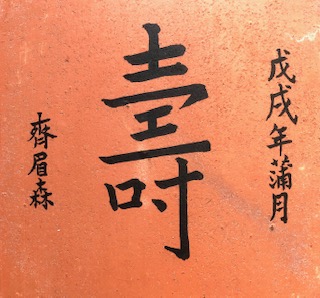 戊戌年蒲月
壽
齊眉森